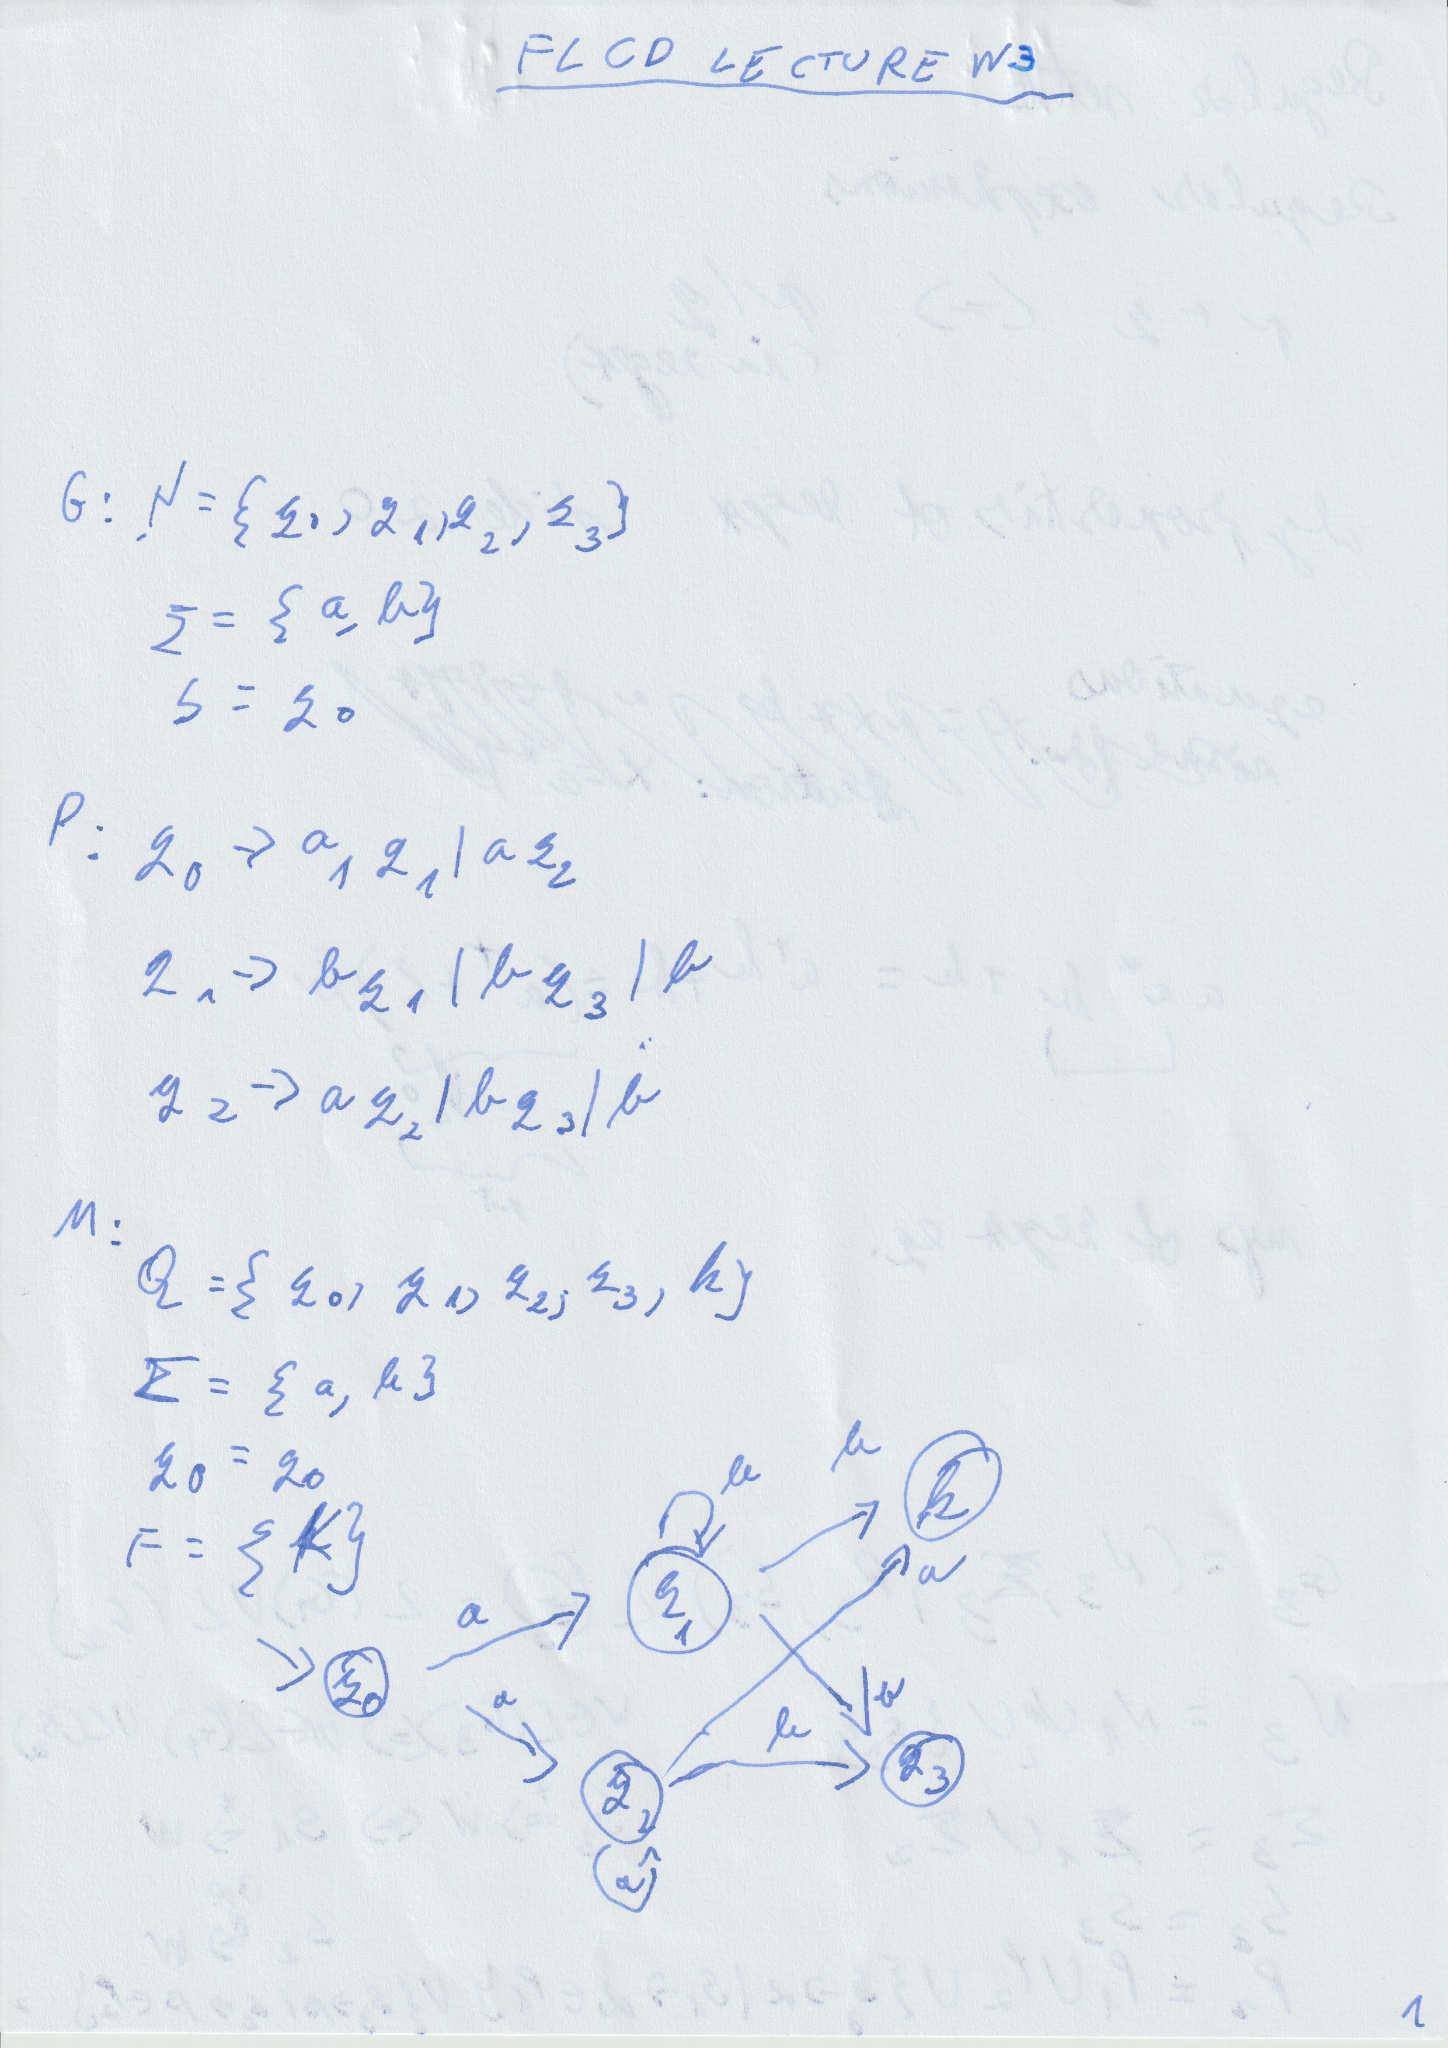 FLCD LECTURE W3
G: N = {q0, q1, q2, q3}
Σ = {a, b}
S = q0
P: q0 -> a1 q1 | a q2
q1 -> b q1 | b q3 | b
q2 -> a q2 | b q3 | b
M:
Q = {q0, q1, q2, q3, k}
Σ = {a, b}
q0 = q0
F = {K}
b
b
k
a
q1
a
q0
a
b
b
q2
q3
a
1